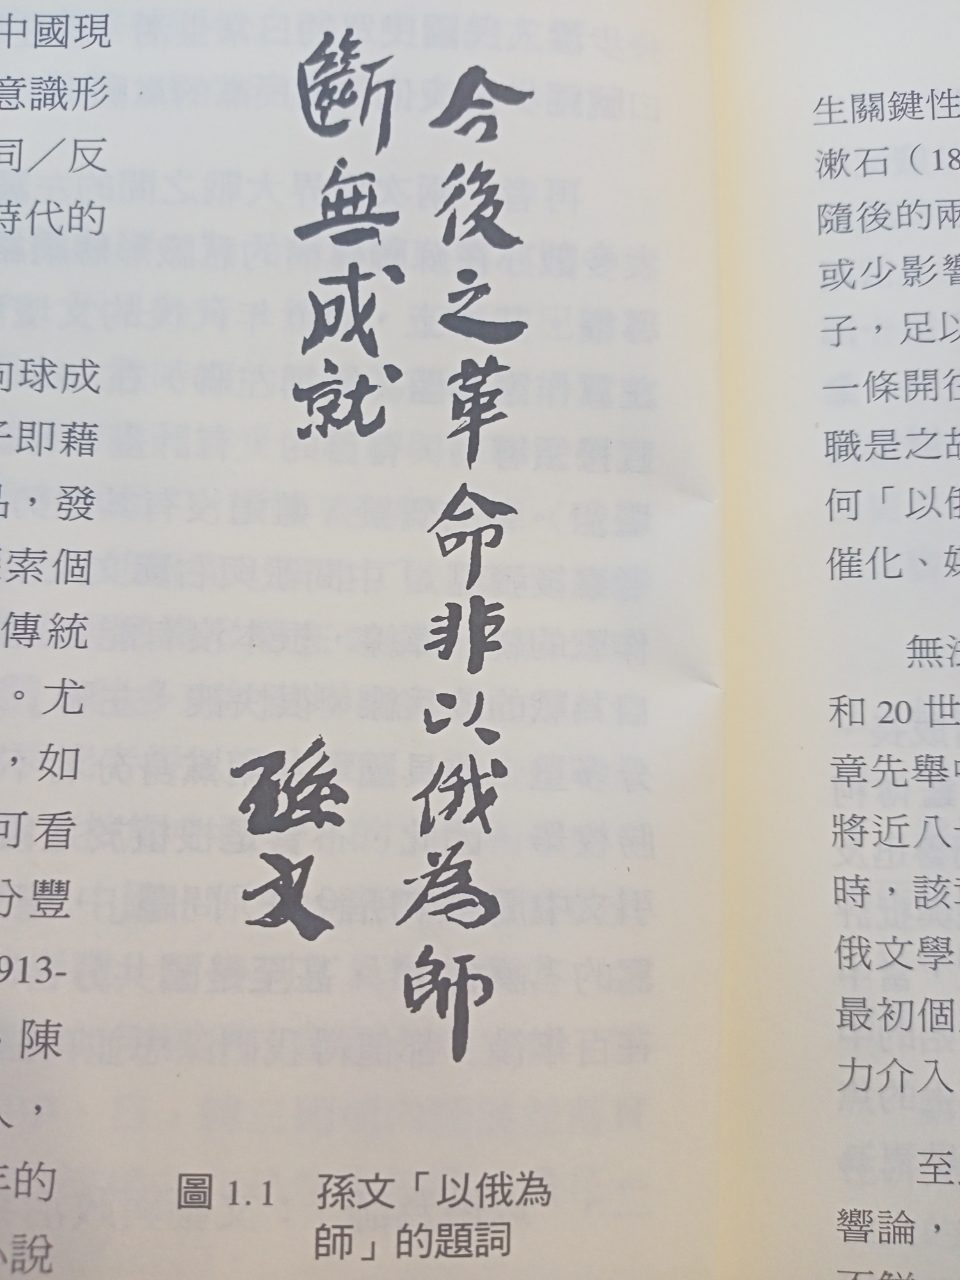 中國現
意識形
／反
時代的
球成
子即藉
，發
索個
傳統
。尤
，如
可看
分豐
913-
陳
，
年的
小說
今後之革命非以俄為師
斷無成就
孫文
圖 1.1 孫文「以俄為
師」的題詞
生關鍵性
漱石（18
隨後的兩
或少影響
子，足以
一條開往
職是之故
何「以俄
催化、
無
和 20 世
章先舉
將近八
時，該
俄文學
最初個
力介入
至
響論，
不鮮